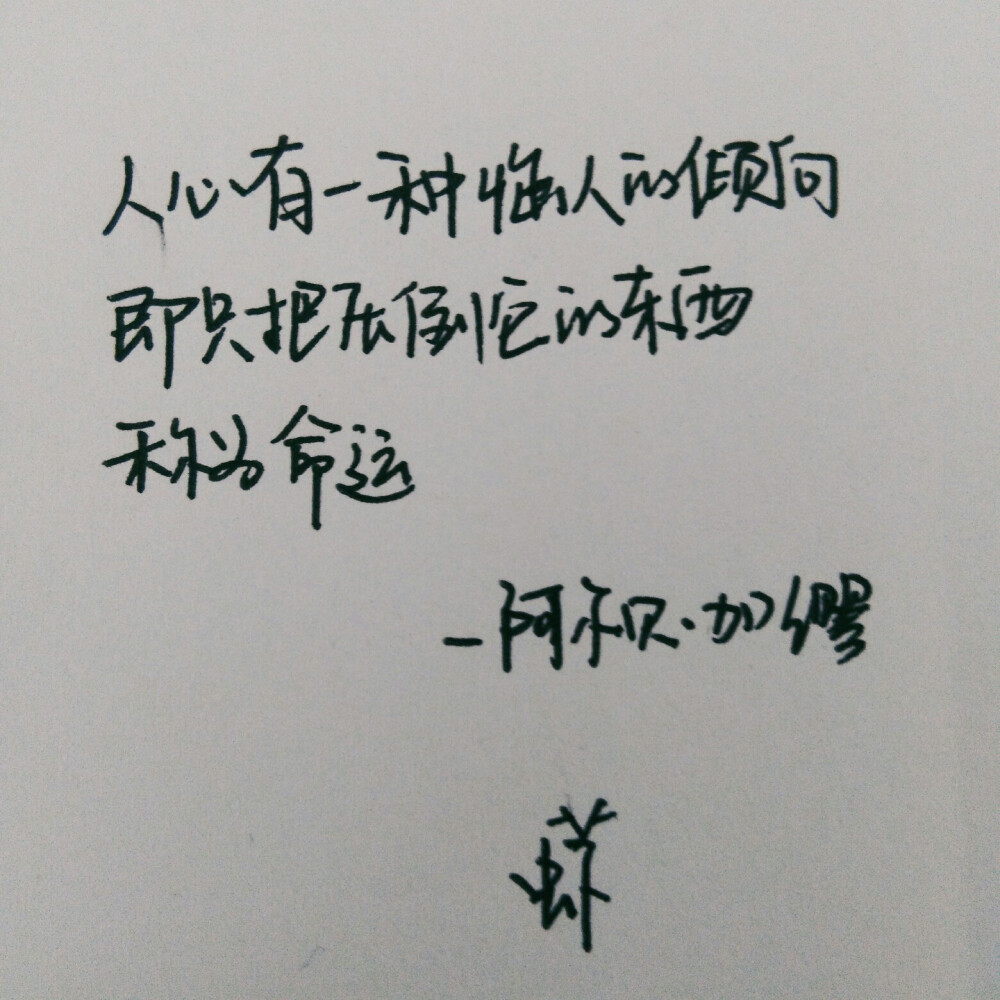 人心有一种恼人的倾向
即只把压倒它的东西
称为命运
–阿尔贝·加缪
虾